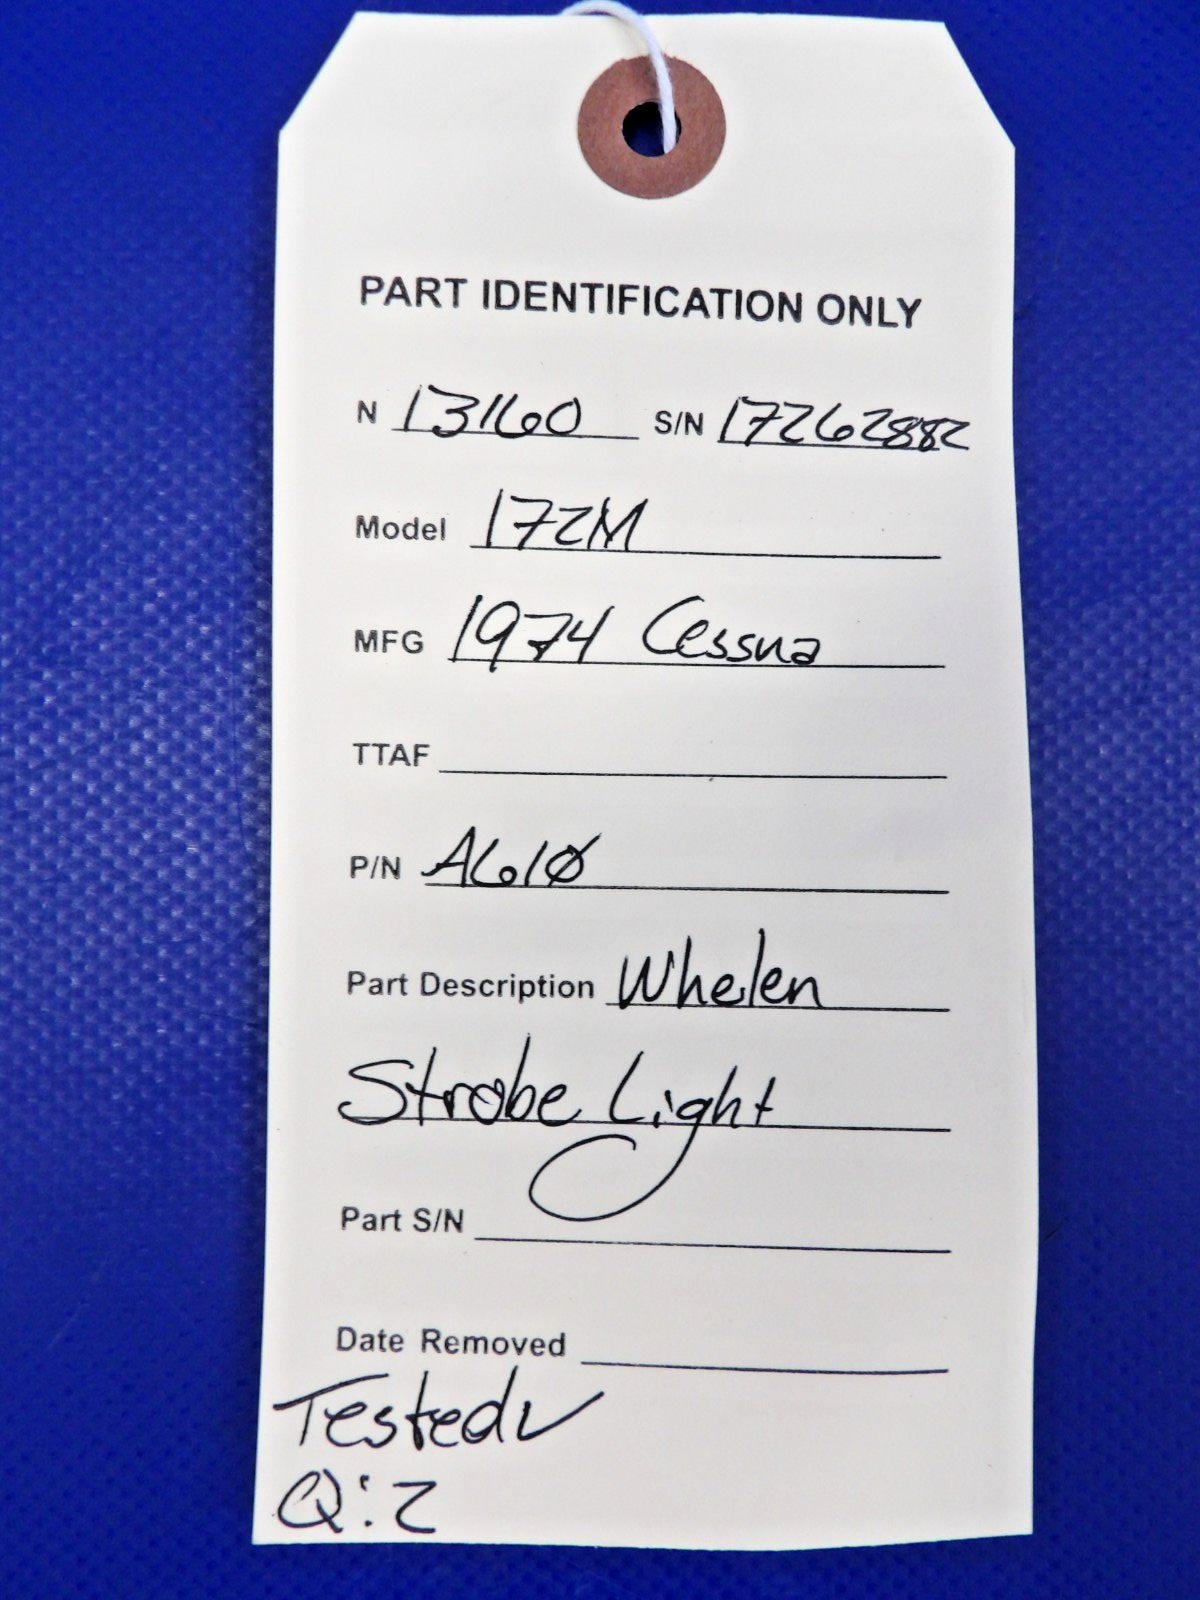 PART IDENTIFICATION ONLY
N 13160 S/N 17262882
Model 172M
MFG 1974 Cessna
TTAF
P/N A61Ø
Part Description Whelen
Strobe Light
Part S/N
Date Removed
Tested ✓
Q: 2